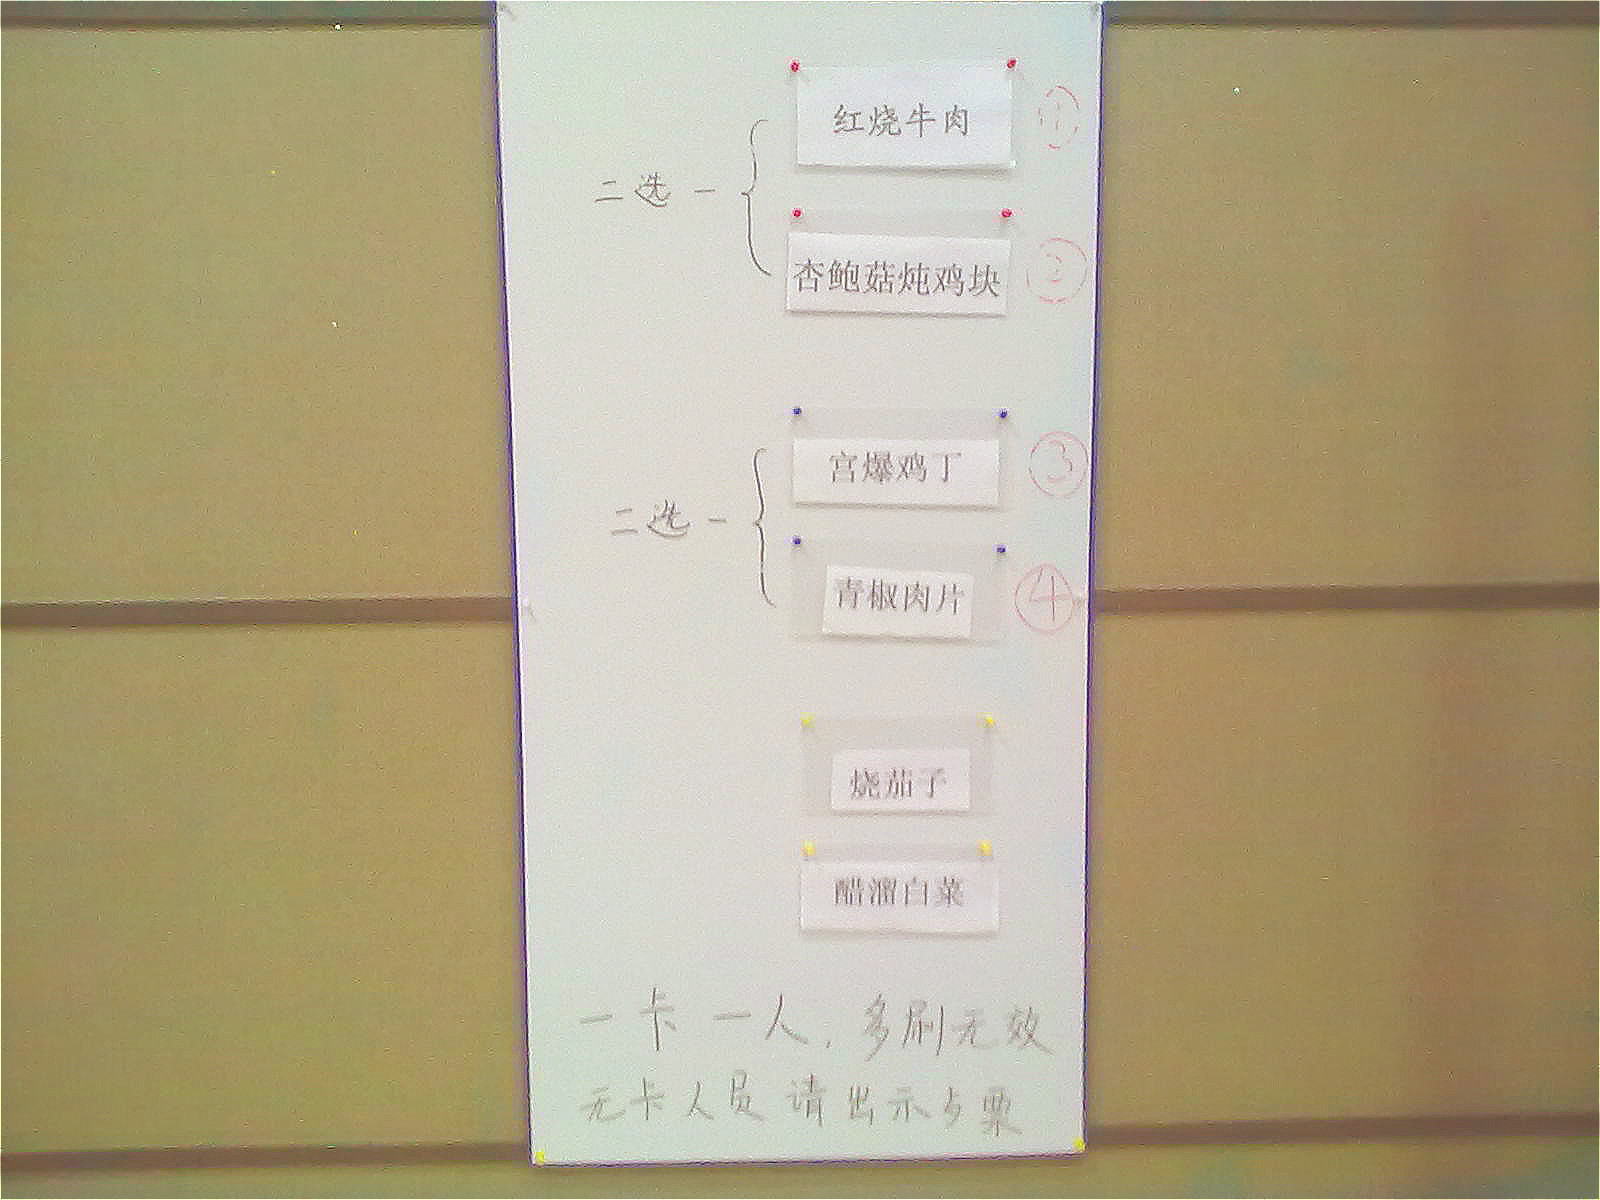 红烧牛肉 ①
二选一
杏鲍菇炖鸡块 ②
宫爆鸡丁 ③
二选一
青椒肉片 ④
烧茄子
醋溜白菜
一卡一人，多刷无效
无卡人员请出示歺票